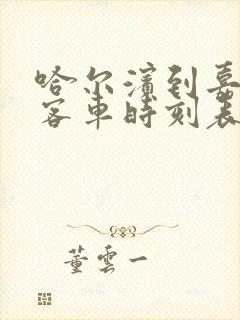 哈尔滨到嘉
客车时刻表
董云一